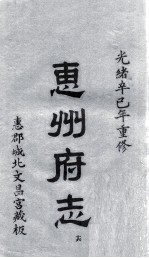 光緒辛巳年重修
惠州府志
惠郡城北文昌宮藏板